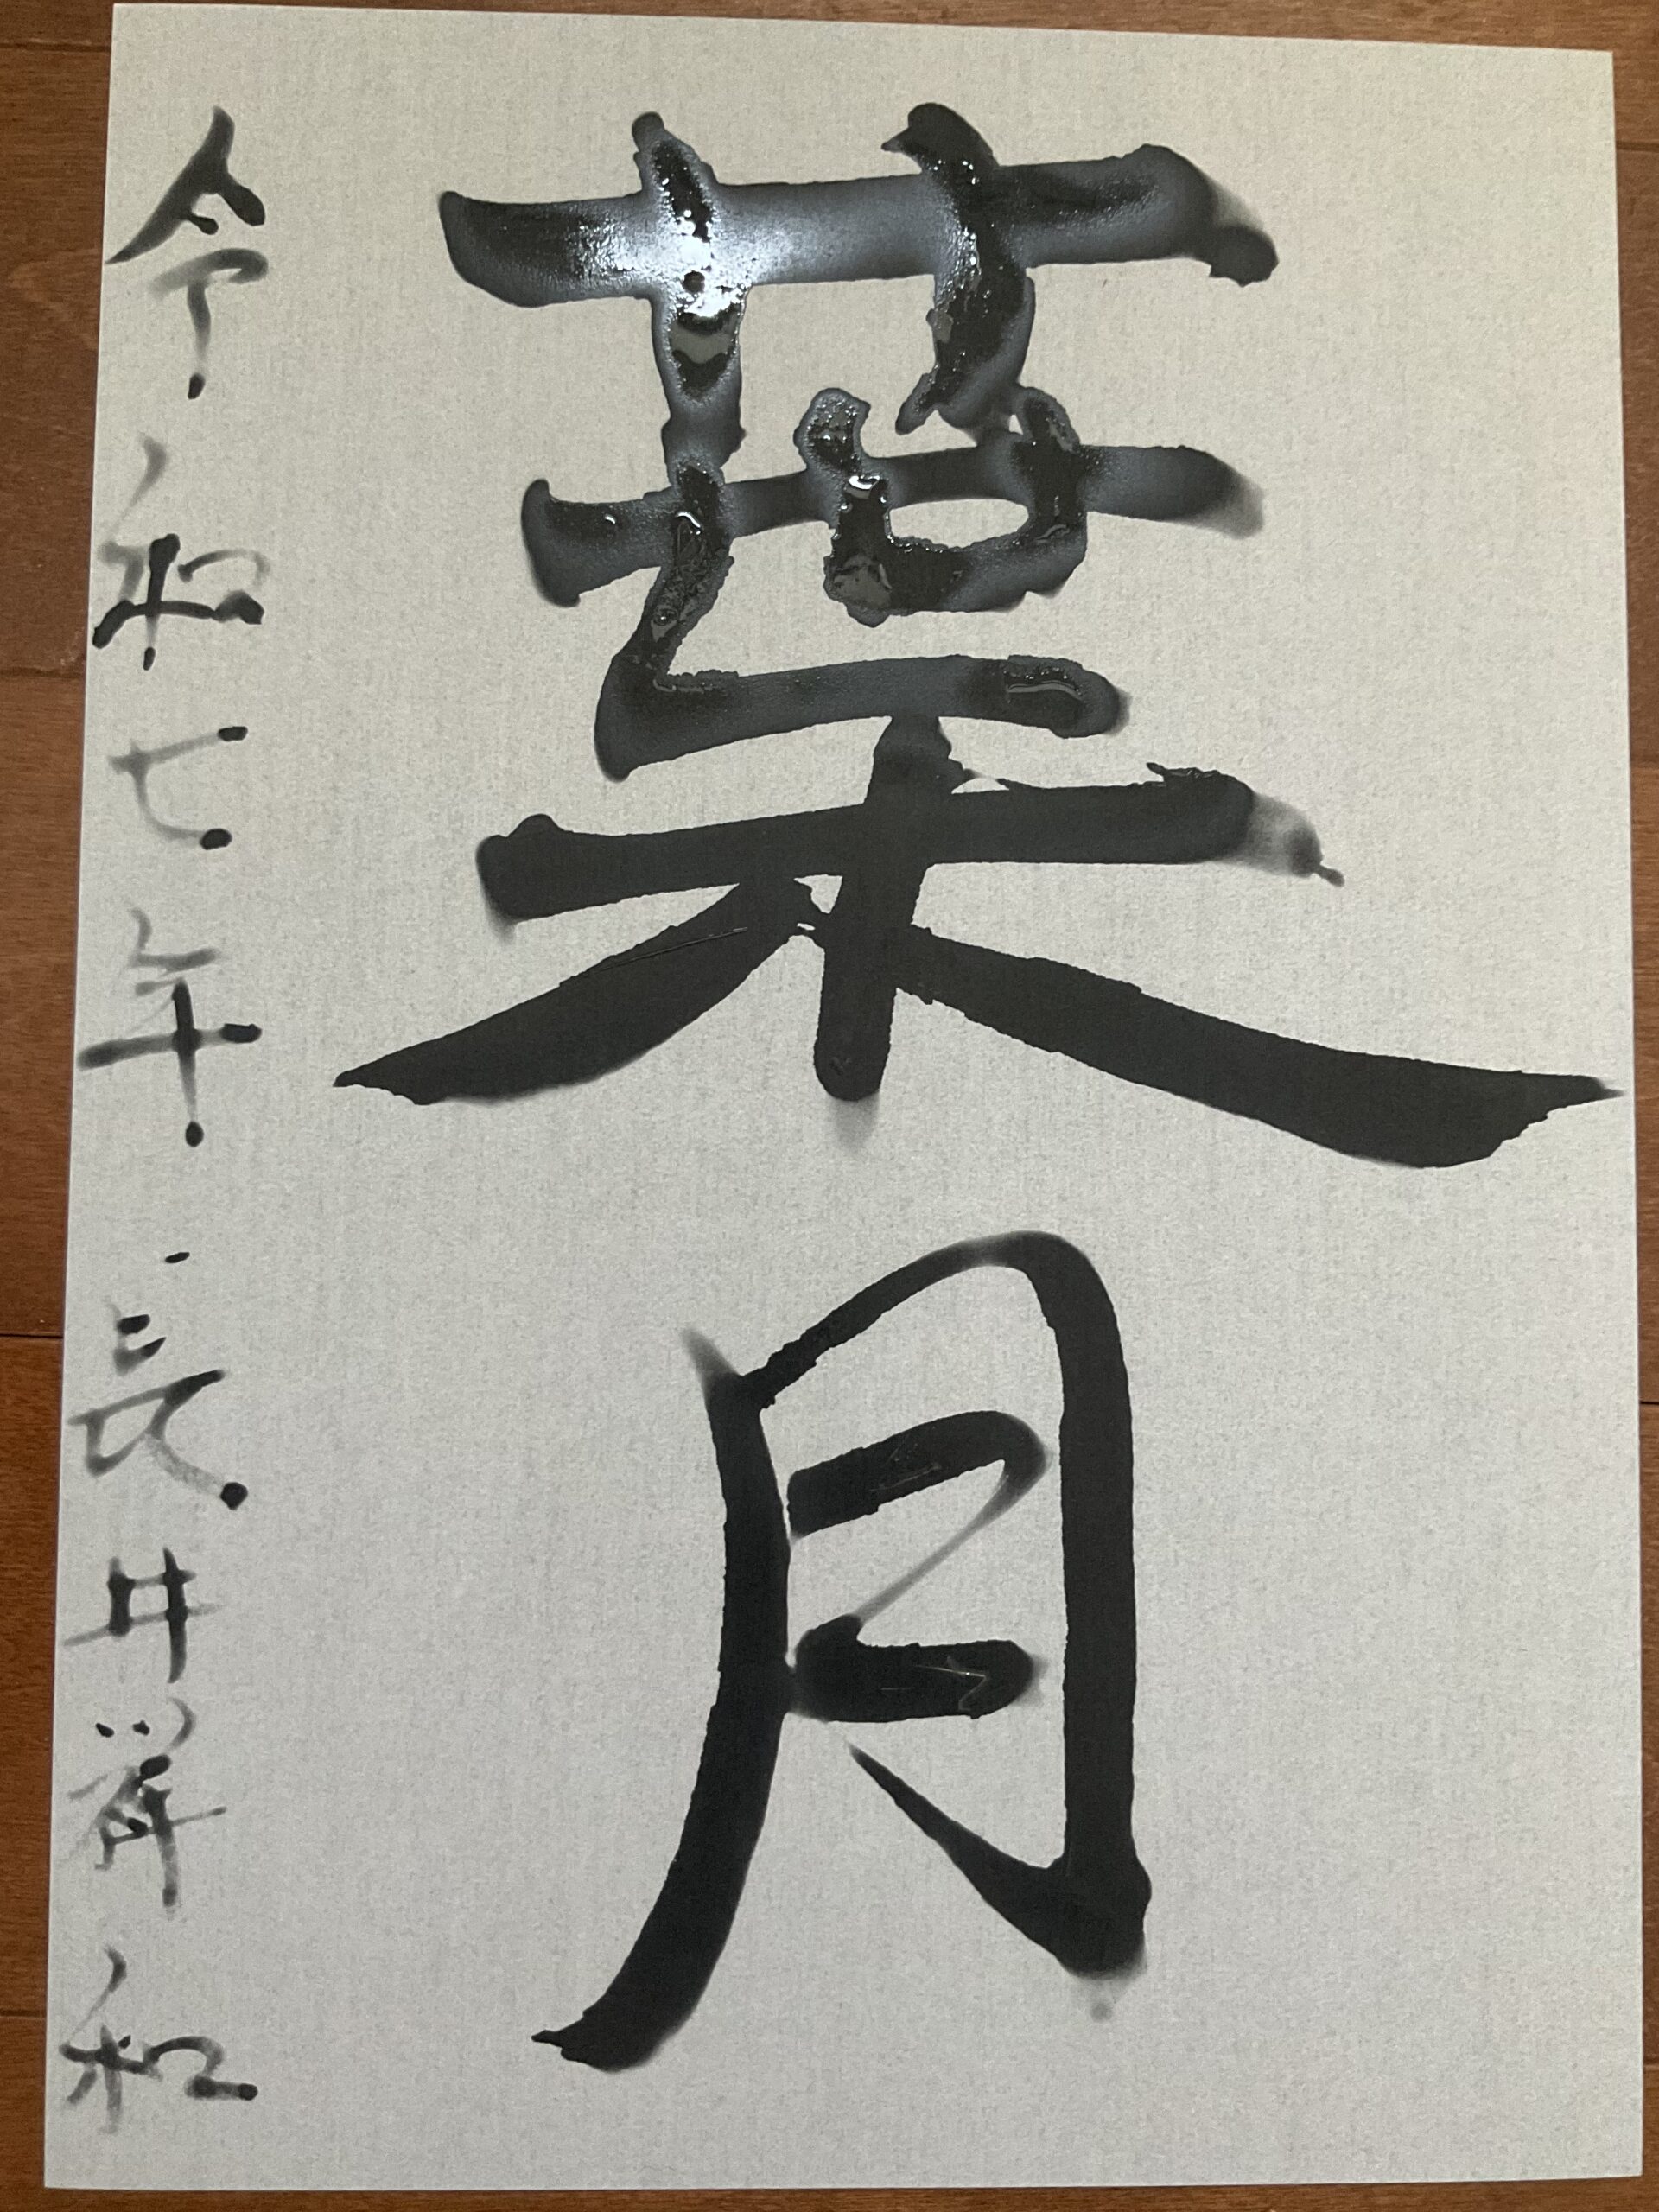 葉月
令和七年長井祥和